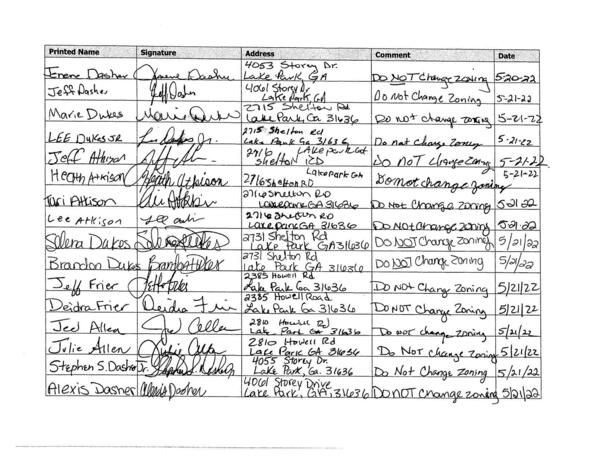 Printed Name Signature Address Comment Date
4053 Storey Dr.
Irene Dasher Irene Dasher Lake Park, GA Do NOT Change zoning 5-20-22
4061 Storey Dr
Jeff Dasher Jeff Dasher Lake Park, GA Do Not Change Zoning 5-21-22
2715 Shelton Rd
Marie Dukes Marie Dukes Lake Park, Ga 31636 Do not change zoning 5-21-22
2715 Shelton Rd
LEE DUKES JR Lee Dukes Jr. Lake Park Ga 31636 Do not change Zoning 5-21-22
2716 LAKE park Ga
Jeff Atkison shelton RD DO NOT Change Zoning 5-21-22
Lake park Ga 5-21-22
Heath Atkison Heath Atkison 2716 Shelton RD Do not change zoning
2716 Shelton RD
Tari Atkison Lake park GA 31636 Do Not Change Zoning 5 21 22
2716 Shelton RD
Lee Atkison Lake park GA 31636 Do Not Change Zoning 5 21 22
2731 Shelton Rd
Selera Dukes Selera Dukes Lake Park GA 31636 Do NOT Change Zoning 5/21/22
2731 Shelton Rd
Brandon Dukes Brandon Dukes Lake Park GA 31636 Do NOT Change Zoning 5/21/22
2385 Howell Rd
Jeff Frier Jeff Frier Lake Park Ga 31636 DO NOT Change Zoning 5/21/22
2385 Howell Road
Deidra Frier Deidra Frier Lake Park GA 31636 DO NOT Change Zoning 5/21/22
2810 Howell Rd
Joel Allen Joel Allen Lake Park GA 31636 Do not change zoning 5/21/22
2810 Howell Rd
Julie Allen Julie Allen Lake Park GA 31636 Do Not Change Zoning 5/21/22
4055 Storey Dr
Stephen S. Dasher Jr. Lake Park, Ga. 31636 Do Not Change Zoning 5/21/22
4061 Storey Drive
Alexis Dasher Alexis Dasher Lake Park, GA, 31636 DO NOT change zoning 5/21/22